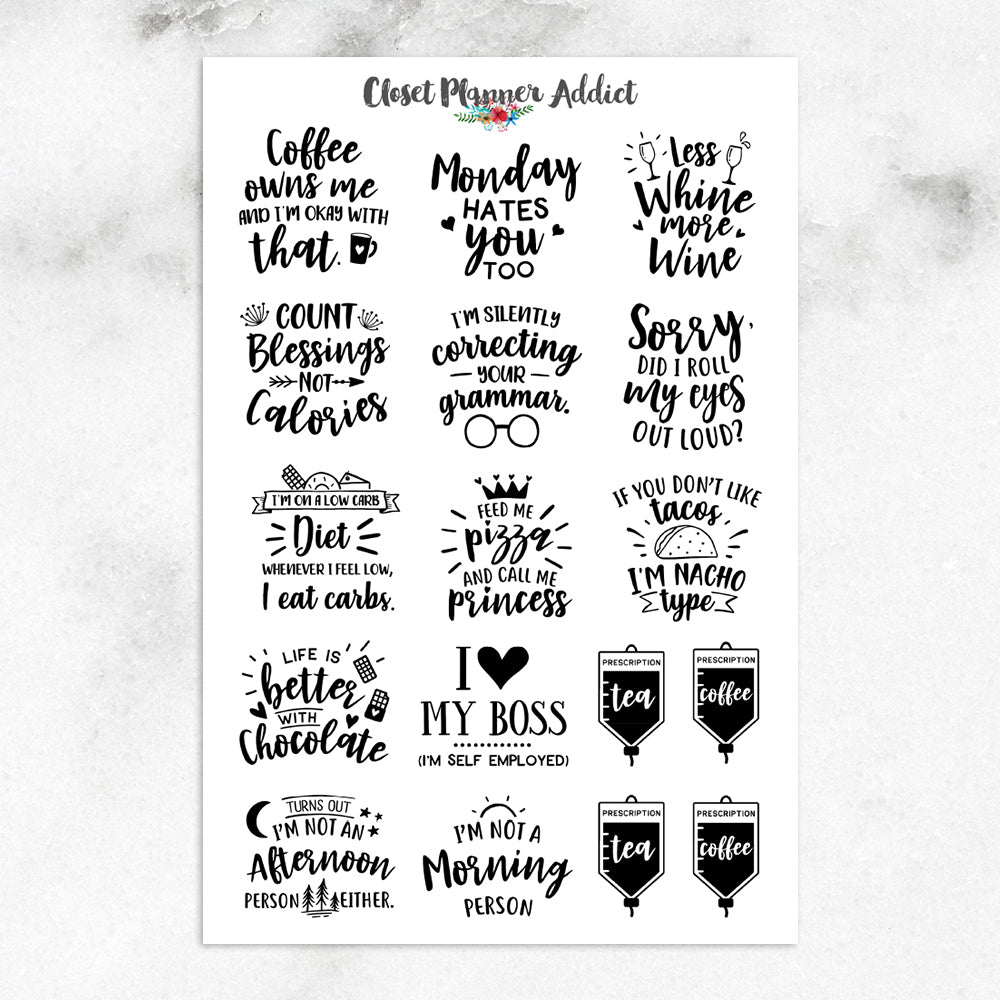 Closet Planner Addict
Coffee
owns me
AND I'M OKAY WITH
that.
Monday
HATES
you
TOO
Less
Whine
more
Wine
COUNT
Blessings
NOT
Calories
I'M SILENTLY
correcting
YOUR
grammar.
Sorry,
DID I ROLL
my eyes
OUT LOUD?
I'M ON A LOW CARB
Diet
WHENEVER I FEEL LOW,
I eat carbs.
FEED ME
pizza
AND CALL ME
princess
IF YOU DON'T LIKE
tacos
I'M NACHO
type
LIFE IS
better
WITH
Chocolate
I
MY BOSS
(I'M SELF EMPLOYED)
PRESCRIPTION
tea
PRESCRIPTION
coffee
TURNS OUT
I'M NOT AN
Afternoon
PERSON EITHER.
I'M NOT A
Morning
PERSON
PRESCRIPTION
tea
PRESCRIPTION
coffee